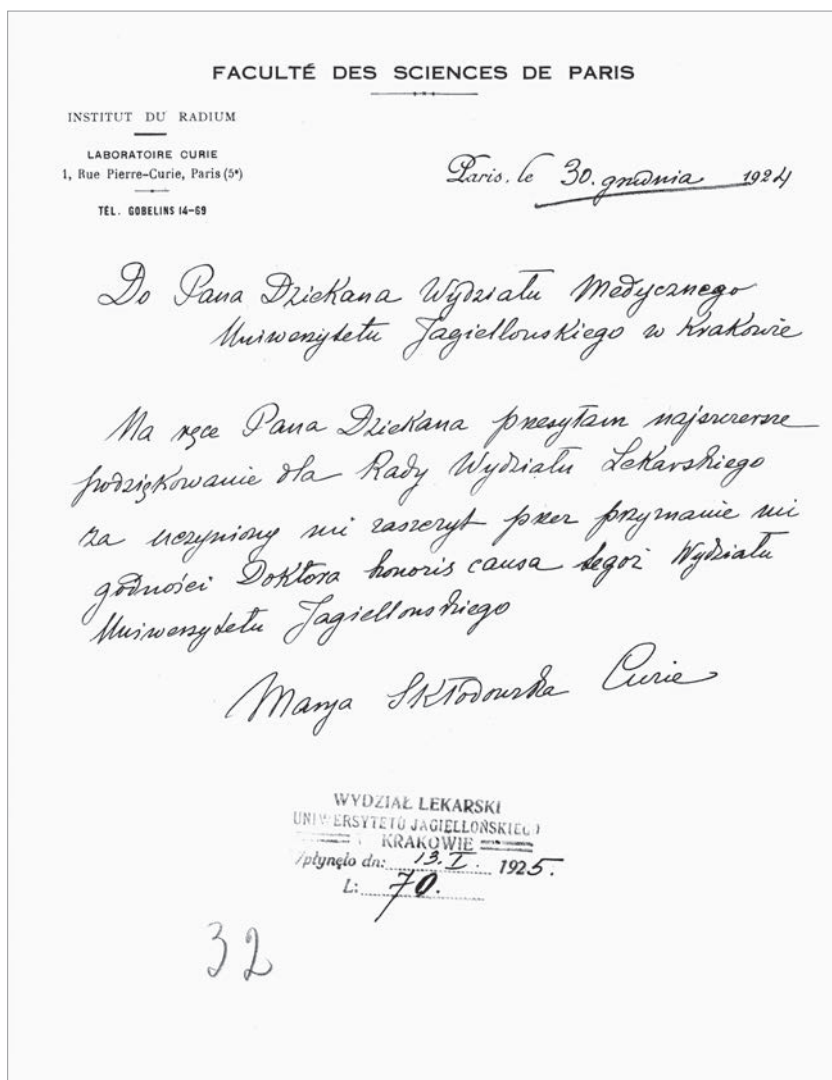 FACULTÉ DES SCIENCES DE PARIS
INSTITUT DU RADIUM
LABORATOIRE CURIE
1, Rue Pierre-Curie, Paris (5e)
TÉL. GOBELINS 14-69
Paris, le 30. grudnia 1924
Do Pana Dziekana Wydziału Medycznego
Uniwersytetu Jagiellonskiego w Krakowie
Na ręce Pana Dziekana przesyłam najszczersze
podziękowanie dla Rady Wydziału Lekarskiego
za uczyniony mi zaszczyt przez przyznanie mi
godności Doktora honoris causa tegoż Wydziału
Uniwersytetu Jagiellonskiego
Marya Skłodowska Curie
WYDZIAŁ LEKARSKI
UNIWERSYTETU JAGIELLOŃSKIEGO
KRAKOWIE
płynęło dn: 13. I. 1925.
L: 70.
32